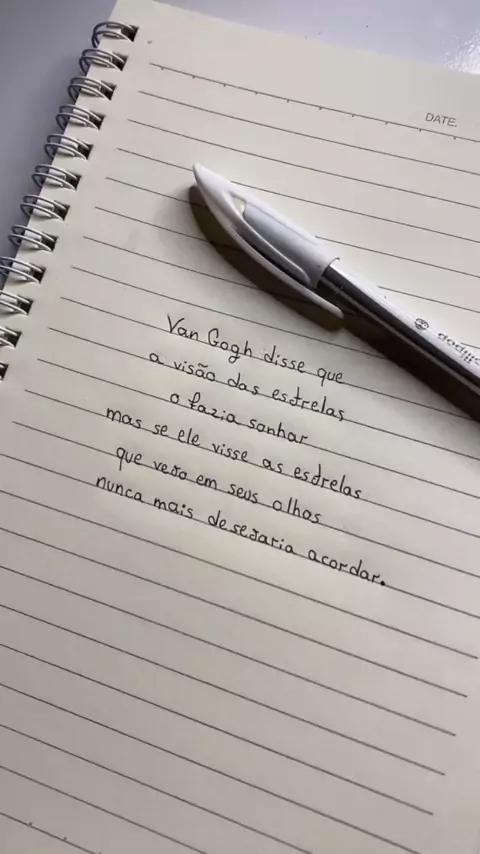 DATE.
Van Gogh disse que
a visão das estrelas
o fazia sonhar
mas se ele visse as estrelas
que vejo em seus olhos
nunca mais desejaria acordar.